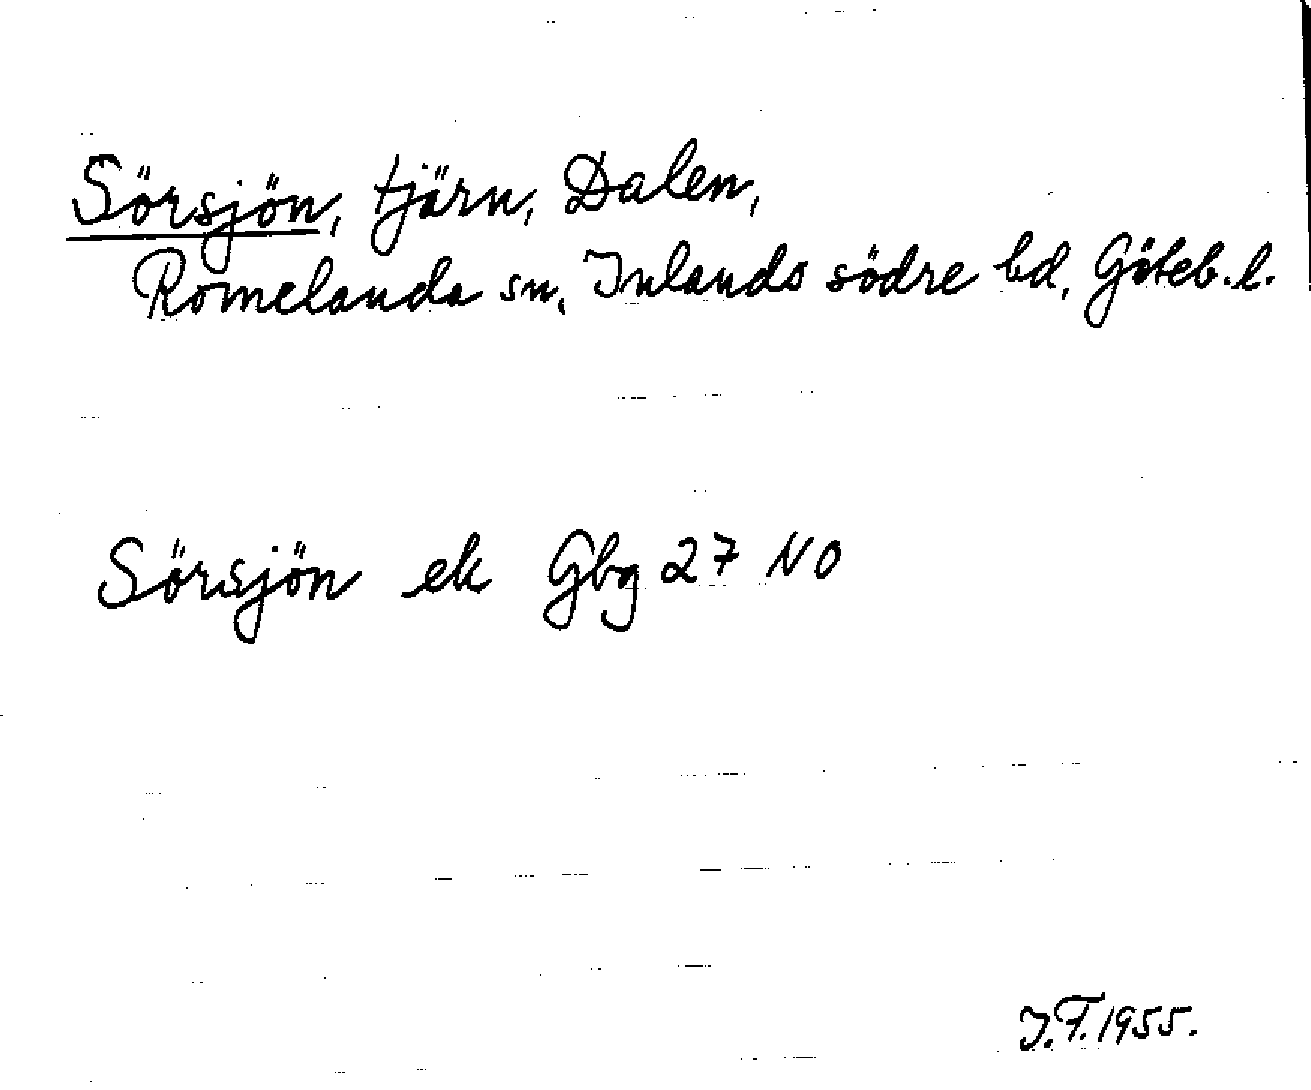 Sörsjön, tjärn, Dalen,
Romelanda sn, Inlands södre hd, Göteb. l.
Sörsjön ek Gbg 27 NO
J.F. 1955.